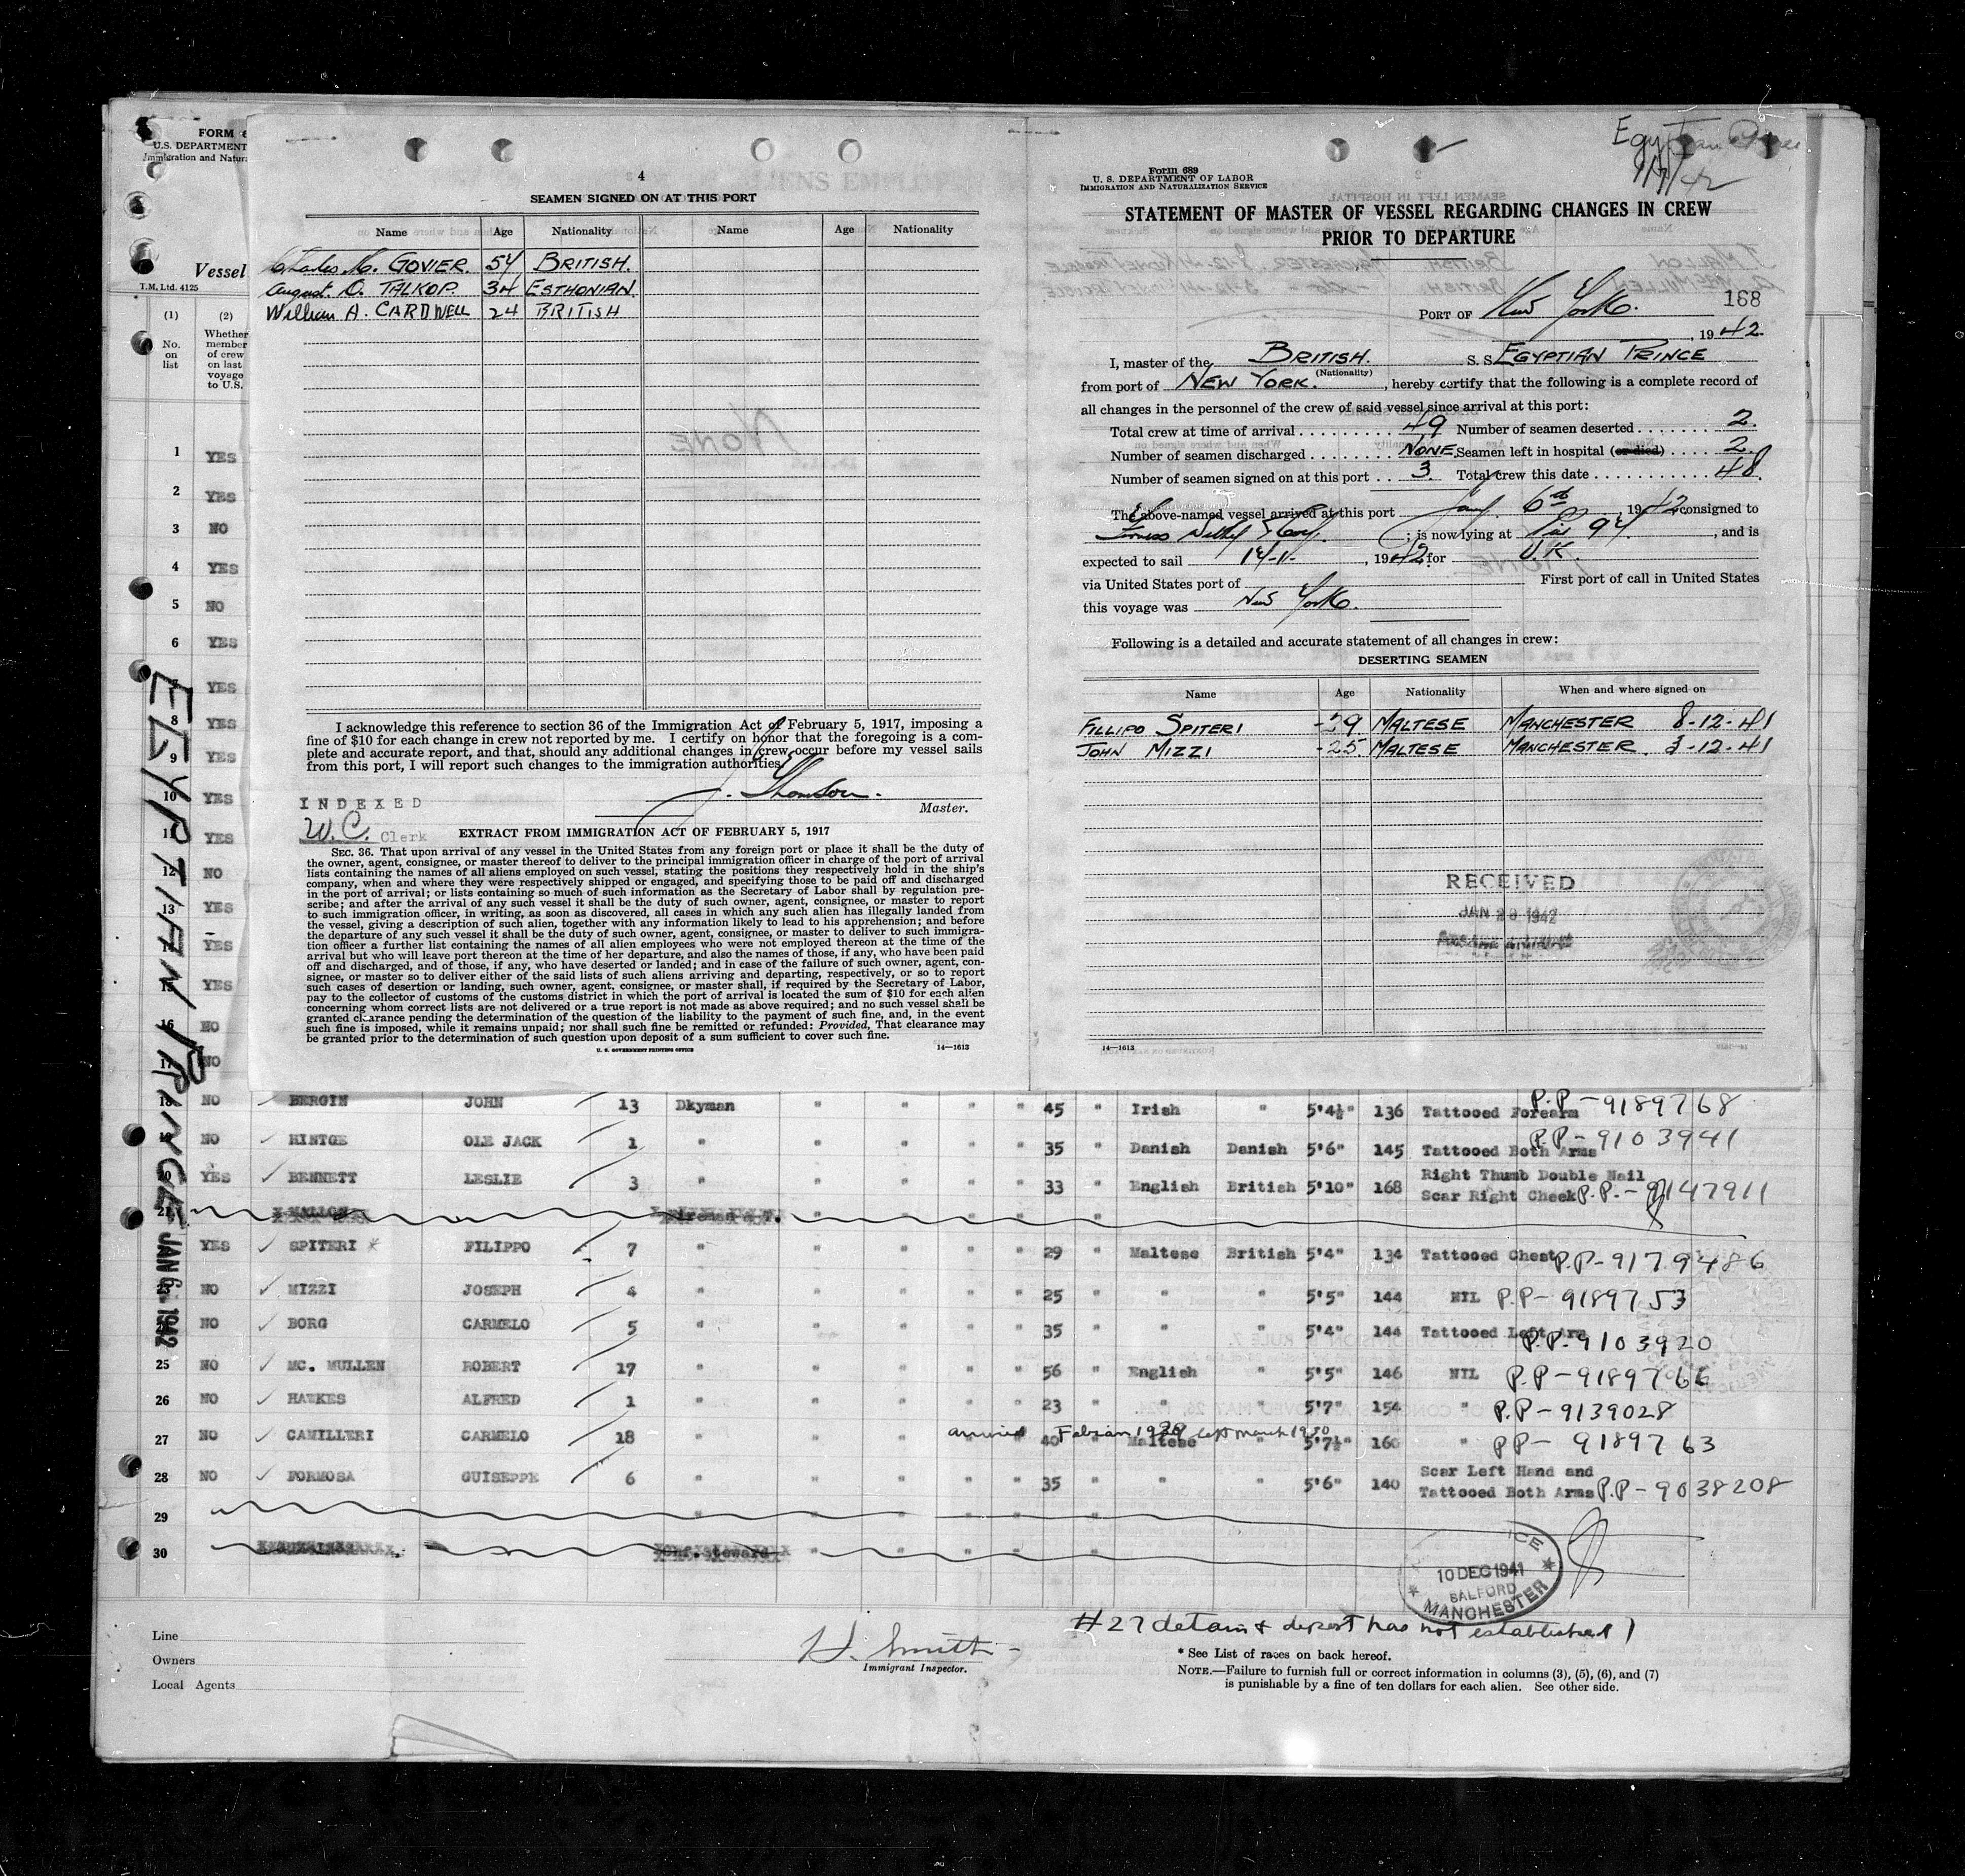 FORM
U.S. DEPARTMENT
Immigration and Natura
Vessel
T.M. Ltd. 4125
(1) (2)
No. on list
Whether member of crew on last voyage to U.S.
1 YES
2 YES
3 NO
4 YES
5 NO
6 YES
7 YES
8 YES
9 YES
10 YES
11 YES
12 NO
13 YES
YES
15 YES
16 NO
17 NO
EGYPTIAN PRINCE JAN 6 1942
4
SEAMEN SIGNED ON AT THIS PORT
Name Age Nationality Name Age Nationality
Charles GOVIER. 54 BRITISH.
August. O. TALKOP. 34 ESTHONIAN.
William A. CARDWELL 24 BRITISH
I acknowledge this reference to section 36 of the Immigration Act of February 5, 1917, imposing a
fine of $10 for each change in crew not reported by me. I certify on honor that the foregoing is a com-
plete and accurate report, and that, should any additional changes in crew occur before my vessel sails
from this port, I will report such changes to the immigration authorities.
J. Thomson.
INDEXED
Master.
W.C. Clerk
EXTRACT FROM IMMIGRATION ACT OF FEBRUARY 5, 1917
SEC. 36. That upon arrival of any vessel in the United States from any foreign port or place it shall be the duty of
the owner, agent, consignee, or master thereof to deliver to the principal immigration officer in charge of the port of arrival
lists containing the names of all aliens employed on such vessel, stating the positions they respectively hold in the ship's
company, when and where they were respectively shipped or engaged, and specifying those to be paid off and discharged
in the port of arrival; or lists containing so much of such information as the Secretary of Labor shall by regulation pre-
scribe; and after the arrival of any such vessel it shall be the duty of such owner, agent, consignee, or master to report
to such immigration officer, in writing, as soon as discovered, all cases in which any such alien has illegally landed from
the vessel, giving a description of such alien, together with any information likely to lead to his apprehension; and before
the departure of any such vessel it shall be the duty of such owner, agent, consignee, or master to deliver to such immigra-
tion officer a further list containing the names of all alien employees who were not employed thereon at the time of the
arrival but who will leave port thereon at the time of her departure, and also the names of those, if any, who have been paid
off and discharged, and of those, if any, who have deserted or landed; and in case of the failure of such owner, agent, con-
signee, or master so to deliver either of the said lists of such aliens arriving and departing, respectively, or so to report
such cases of desertion or landing, such owner, agent, consignee, or master shall, if required by the Secretary of Labor,
pay to the collector of customs of the customs district in which the port of arrival is located the sum of $10 for each alien
concerning whom correct lists are not delivered or a true report is not made as above required; and no such vessel shall be
granted clearance pending the determination of the question of the liability to the payment of such fine, and, in the event
such fine is imposed, while it remains unpaid; nor shall such fine be remitted or refunded: Provided, That clearance may
be granted prior to the determination of such question upon deposit of a sum sufficient to cover such fine.
U. S. GOVERNMENT PRINTING OFFICE 14—1613
Egyptian Prince
Form 689
U. S. DEPARTMENT OF LABOR
IMMIGRATION AND NATURALIZATION SERVICE
STATEMENT OF MASTER OF VESSEL REGARDING CHANGES IN CREW
PRIOR TO DEPARTURE
168
PORT OF New York.
, 1942.
I, master of the BRITISH. S. S. EGYPTIAN PRINCE
(Nationality)
from port of NEW YORK. , hereby certify that the following is a complete record of
all changes in the personnel of the crew of said vessel since arrival at this port:
Total crew at time of arrival . . . . . . . . . 49 Number of seamen deserted . . . . . . . 2.
Number of seamen discharged . . . . . . . . NONE. Seamen left in hospital (or died) . . . . . 2.
Number of seamen signed on at this port . . 3. Total crew this date . . . . . . . . . . . 48.
The above-named vessel arrived at this port Jany. 6th , 1942 consigned to
Furness Withy & Coy. ; is now lying at Pier 94. , and is
expected to sail 14-1- , 1942. for U.K.
via United States port of First port of call in United States
this voyage was New York.
Following is a detailed and accurate statement of all changes in crew:
DESERTING SEAMEN
Name Age Nationality When and where signed on
FILLIPO SPITERI -29 MALTESE MANCHESTER 8-12-41
JOHN MIZZI -25 MALTESE MANCHESTER. 3-12-41
RECEIVED
JAN 20 1942
14—1613
18 NO BERGIN JOHN 13 Dkyman " " " " 45 " Irish " 5'4½" 136 Tattooed Forearm P.P-9189768
19 NO HINTGE OLE JACK 1 " " " " " 35 " Danish Danish 5'6" 145 Tattooed Both Arms P.P-9103941
20 YES BENNETT LESLIE 3 " " " " " 33 " English British 5'10" 168 Right Thumb Double Nail
Scar Right Cheek P.P.-9147911
21 MALLON Fireman & T. "
YES SPITERI * FILIPPO 7 " " " " " 29 " Maltese British 5'4" 134 Tattooed Chest P.P-9179486
23 NO MIZZI JOSEPH 4 " " " " " 25 " " " 5'5" 144 NIL P.P- 9189753
NO BORG CARMELO 5 " " " " " 35 " " " 5'4" 144 Tattooed Left Arm P.P.9103920
25 NO MC. MULLEN ROBERT 17 " " " " " 56 " English " 5'5" 146 NIL P.P-9189766
26 NO HAWKES ALFRED 1 " " " " " 23 " " " 5'7" 154 " P.P-9139028
arrived Febian 1929 left March 1930
27 NO CAMILLERI CARMELO 18 " " " " " 40 " Maltese " 5'7½" 160 " PP- 9189763
28 NO FORMOSA GUISEPPE 6 " " " " " 35 " " " 5'6" 140 Scar Left Hand and
Tattooed Both Arms P.P-9038208
29
30 Chf. Steward
ICE
10 DEC 1941
SALFORD
MANCHESTER
#27 detain & deport has not established
Line
Owners
Local Agents
H. Smith
Immigrant Inspector.
* See List of races on back hereof.
NOTE.—Failure to furnish full or correct information in columns (3), (5), (6), and (7)
is punishable by a fine of ten dollars for each alien. See other side.